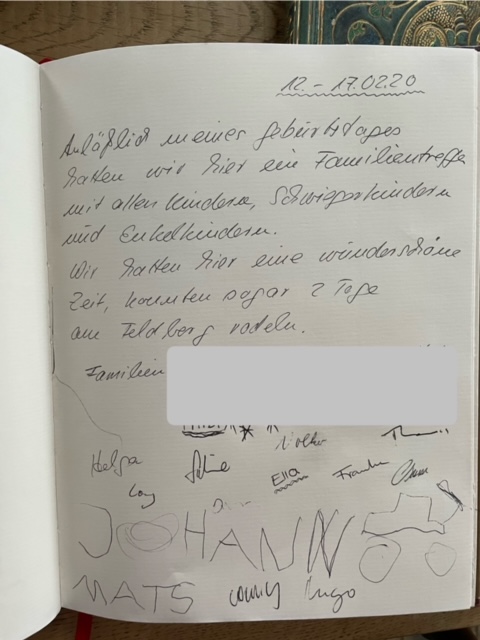 12. - 17.02.20
Anläßlich meines Geburtstages
hatten wir hier ein Familientreffen
mit allen Kindern, Schwiegerkindern
und Enkelkindern.
Wir hatten hier eine wunderschöne
Zeit, konnten sogar 2 Tage
am Feldberg rodeln.
Familien
Volker
Helga
Ella
JOHANN
MATS
Hugo